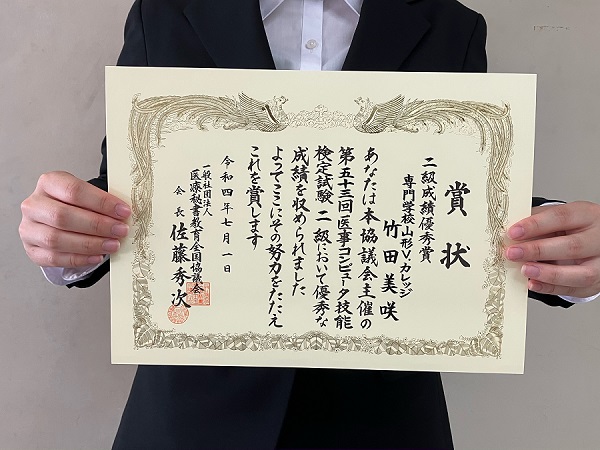 賞状
二級成績優秀賞
専門学校山形V.カレッジ
竹田美咲
あなたは本協議会主催の
第五十三回医事コンピュータ技能
検定試験二級において優秀な
成績を収められました
よってここにその努力をたたえ
これを賞します
令和四年七月一日
一般社団法人
医療秘書教育全国協議会
会長 佐藤秀次